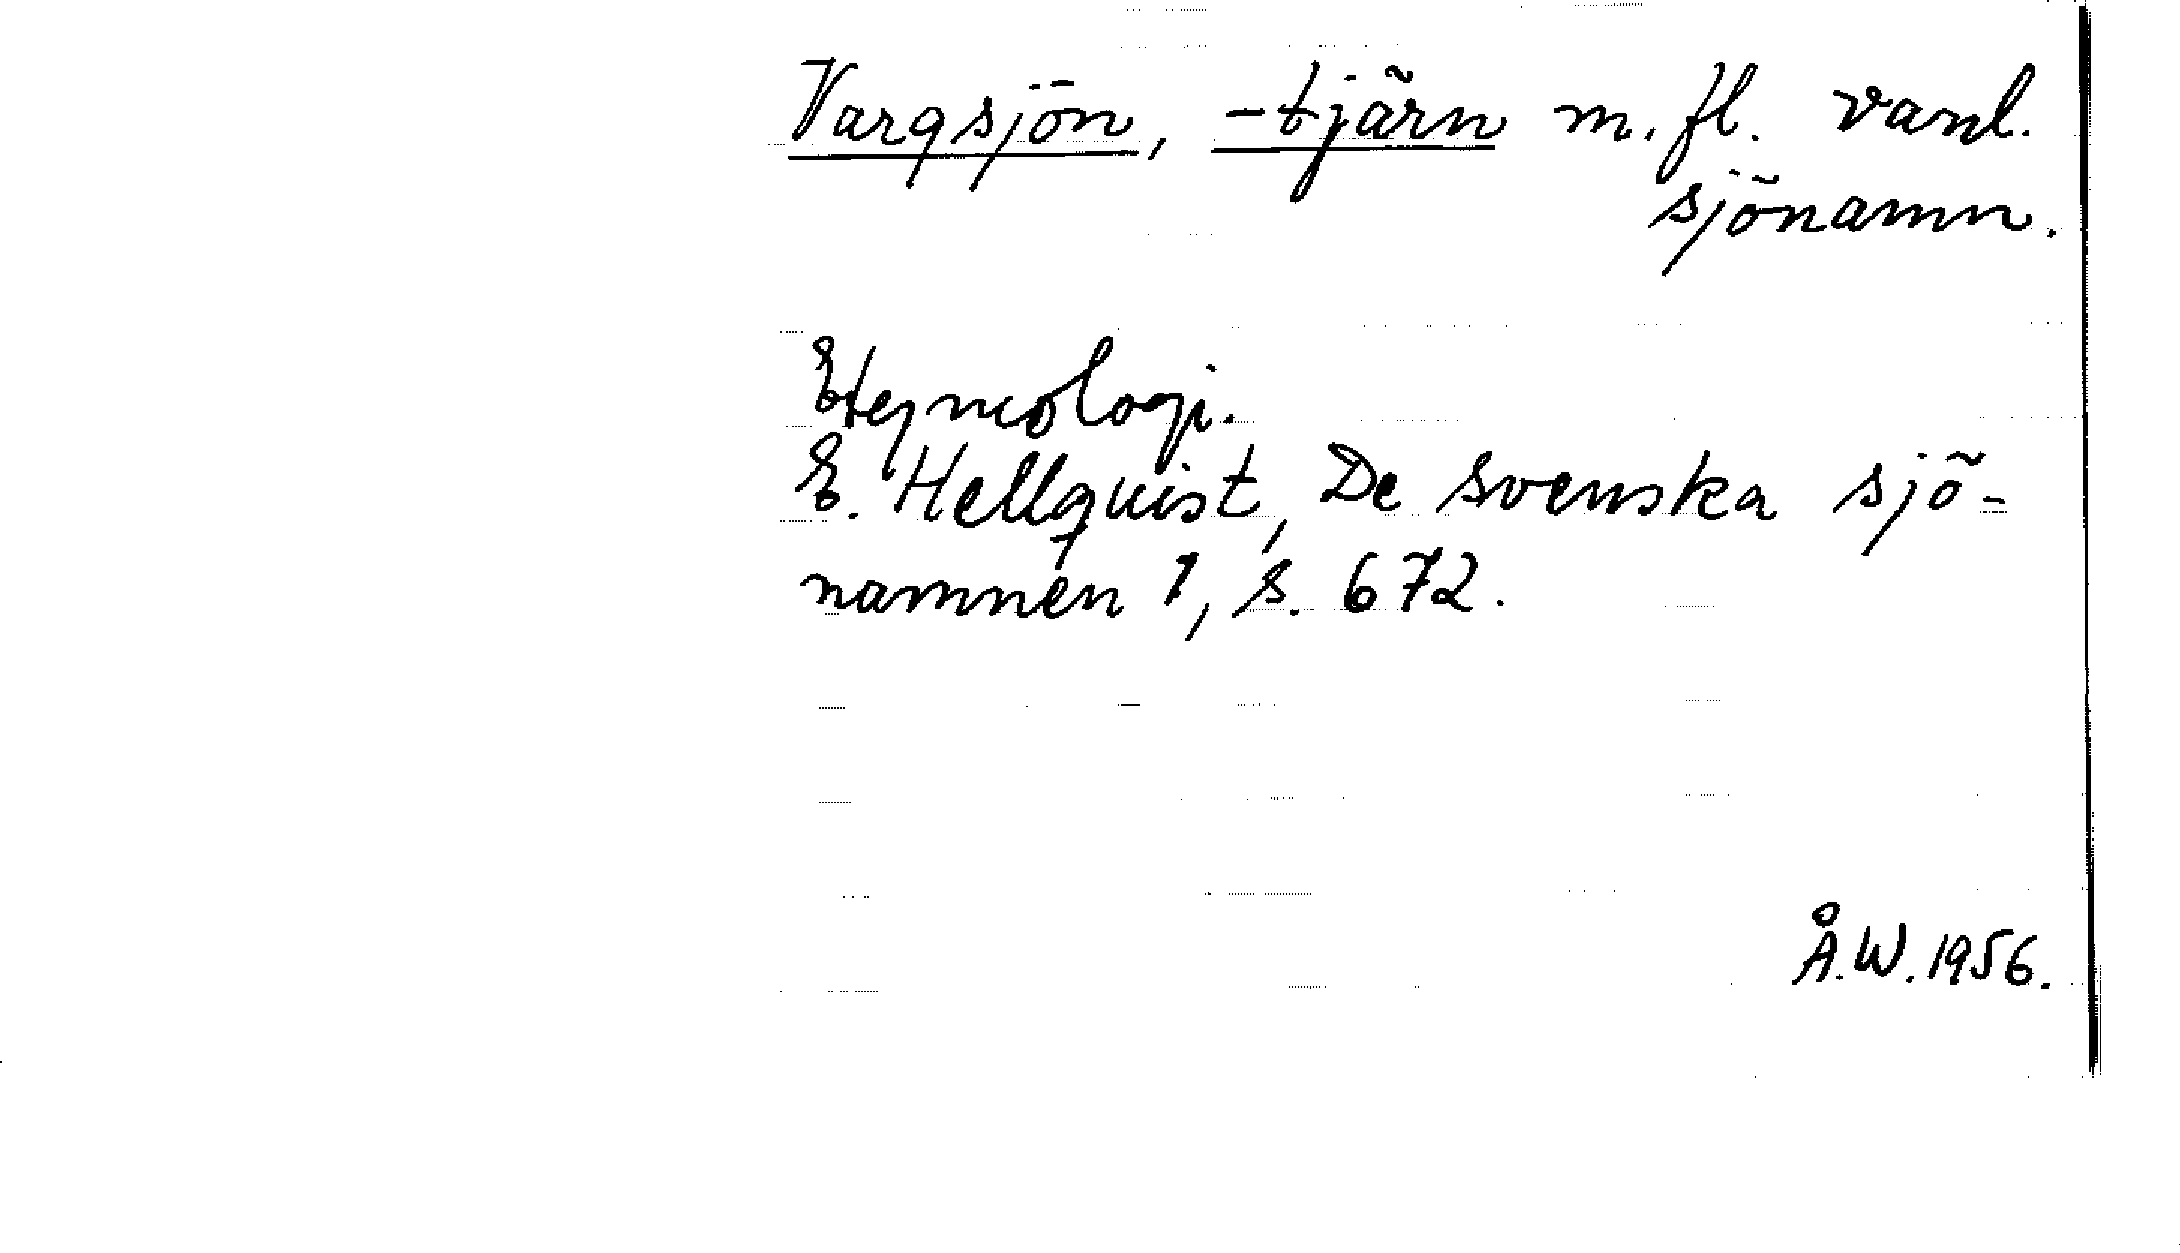 Vargsjön, -tjärn m.fl. vanl.
sjönamn.
Etymologi.
E. Hellquist, De svenska sjö-
namnen 1, s. 672.
Å.W. 1956.